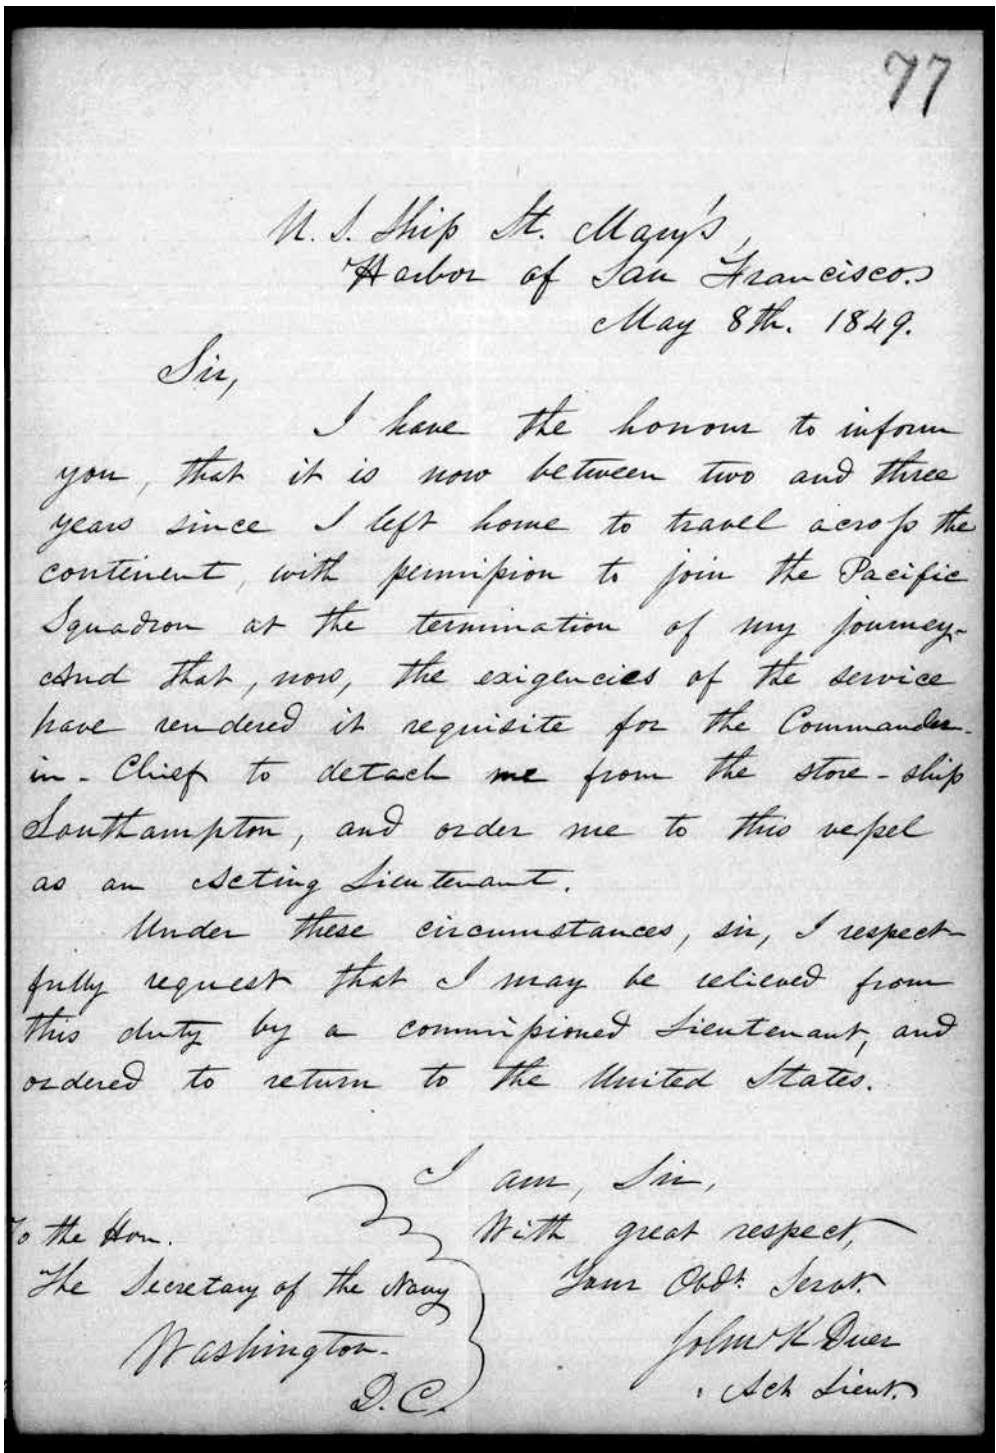 77
U. S. Ship St. Mary's,
Harbor of San Francisco.
May 8th. 1849.
Sir,
I have the honour to inform
you, that it is now between two and three
years since I left home to travel across the
continent, with permission to join the Pacific
Squadron at the termination of my journey-
And that, now, the exigencies of the service
have rendered it requisite for the Commander-
in-Chief to detach me from the store-ship
Southampton, and order me to this vessel
as an Acting Lieutenant.
Under these circumstances, sir, I respect-
fully request that I may be relieved from
this duty by a commissioned Lieutenant, and
ordered to return to the United States.
I am, Sir,
With great respect,
Your Obdt. Servt.
John K Duer
Act Lieut.
To the Hon.
The Secretary of the Navy
Washington-
D.C.